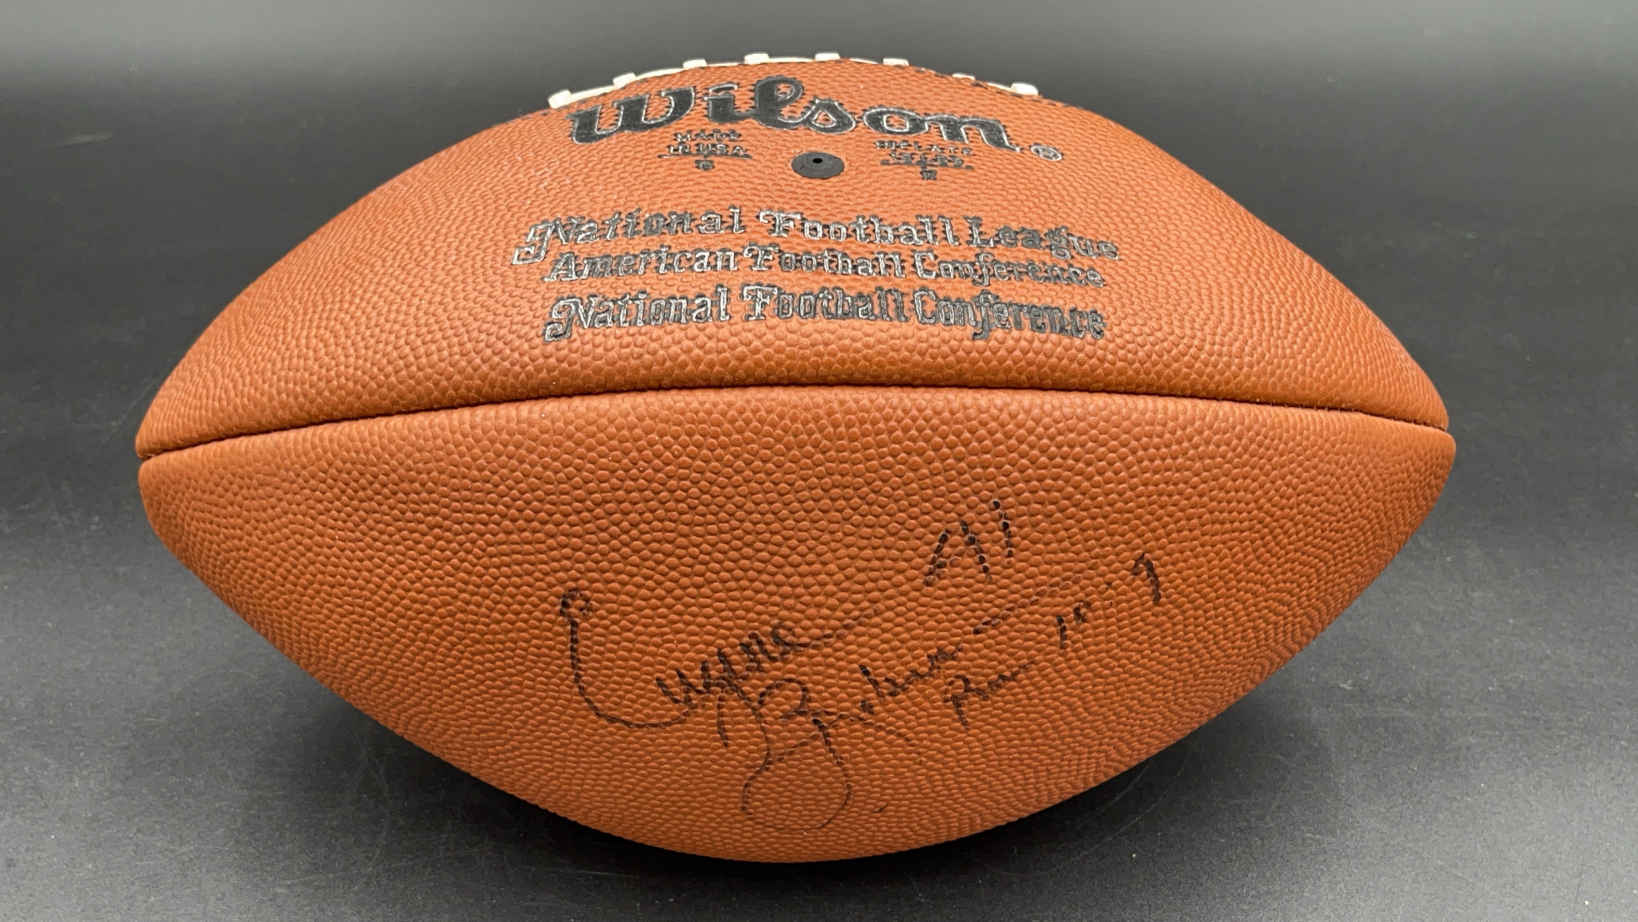 Wilson®
MADE IN USA
INFLATE
National Football League
American Football Conference
National Football Conference
Eugene
Robinson